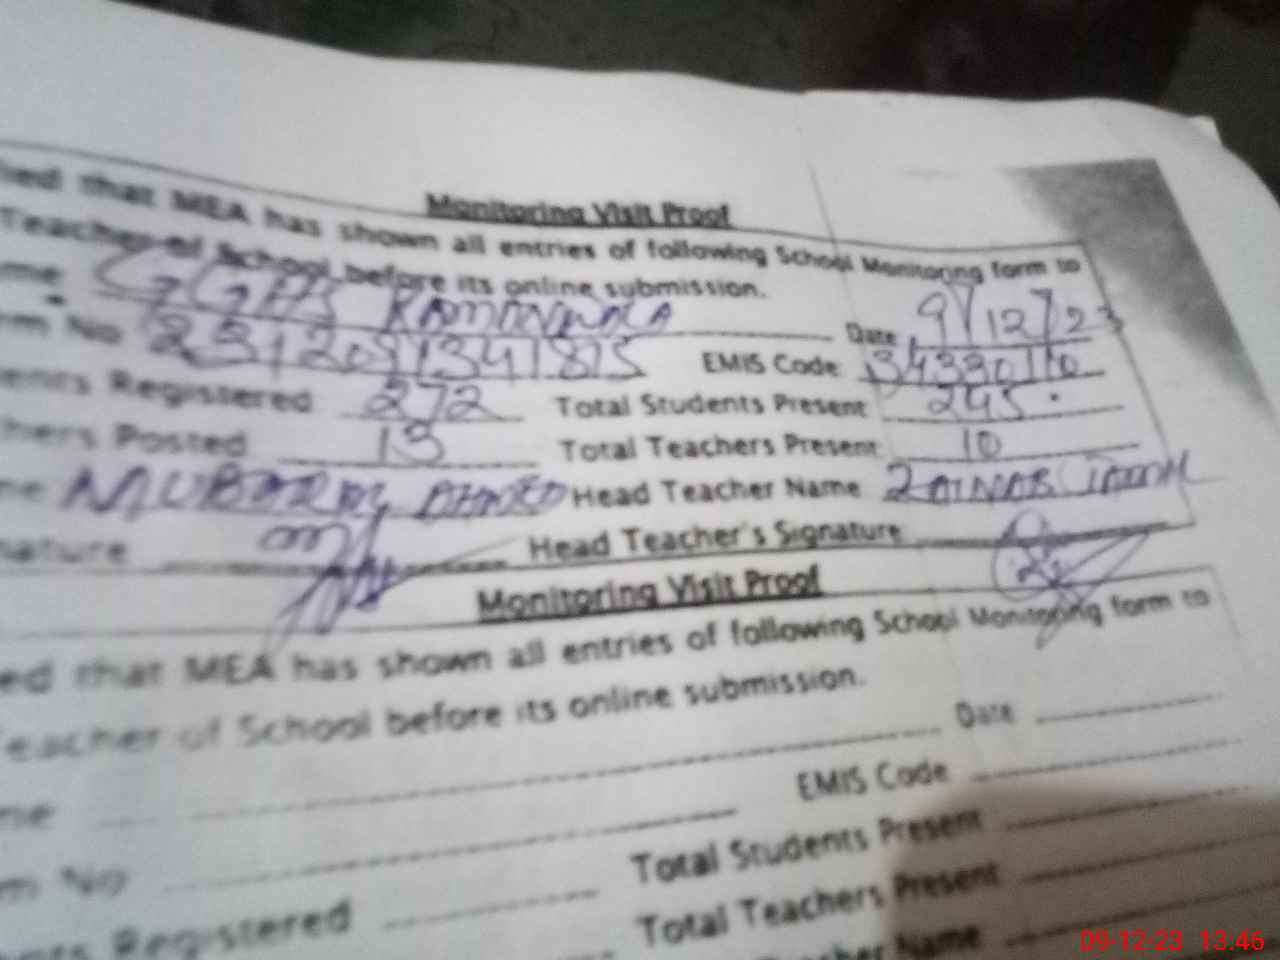 Monitoring Visit Proof
ied that MEA has shown all entries of following School Monitoring form to
Teacher of School before its online submission.
me GGHS Date 9/12/23
rm No EMIS Code 34330110
ents Registered 272 Total Students Present 245
hers Posted 13 Total Teachers Present 10
me MUBARAK AHMED Head Teacher Name ZAINAB
nature Head Teacher's Signature
Monitoring Visit Proof
ed that MEA has shown all entries of following School Monitoring form to
Teacher of School before its online submission.
me Date
m No EMIS Code
ents Registered Total Students Present
Total Teachers Present
Teacher Name
09-12-23 13:46